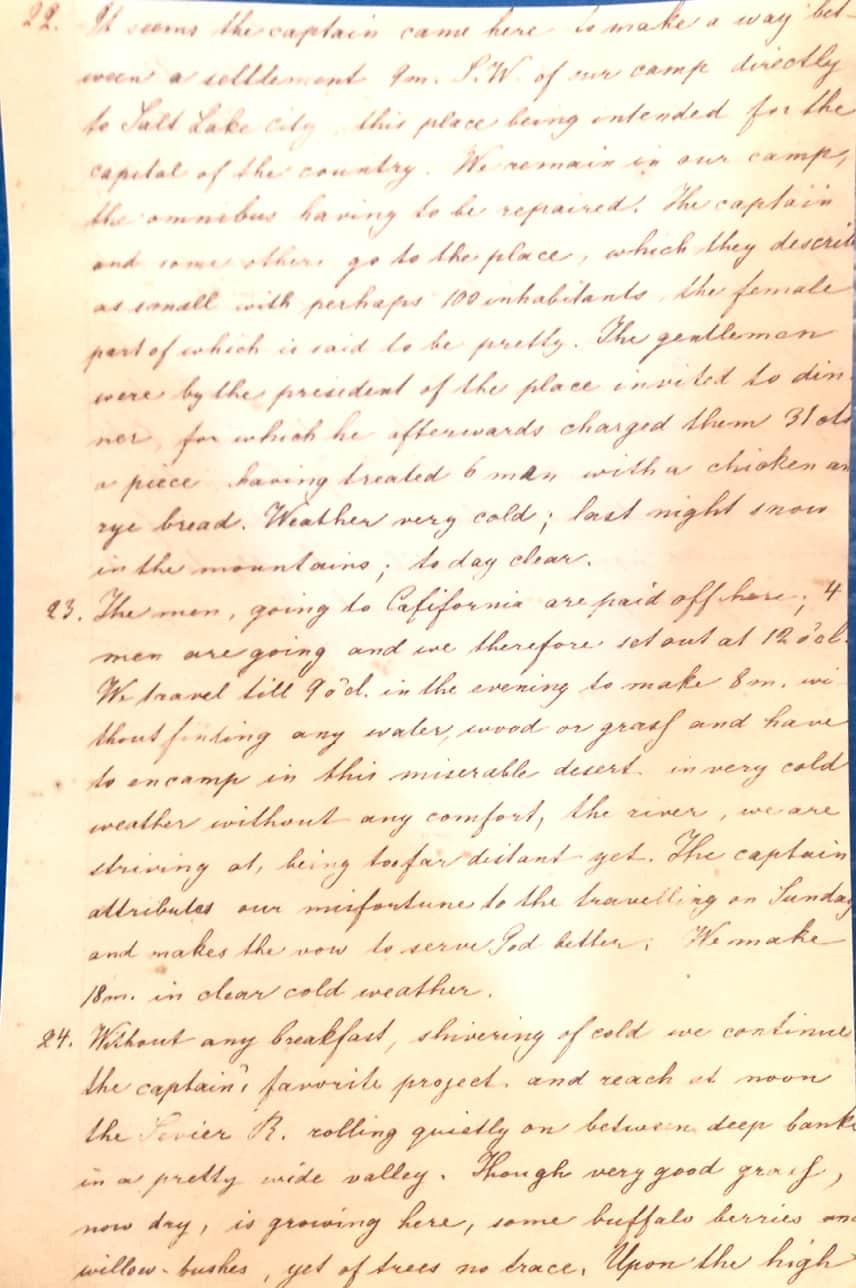 22. It seems the captain came here to make a way bet-
ween a settlement 9m. S.W. of our camp directly
to Salt Lake City, this place being intended for the
capital of the country. We remain in our camp,
the omnibus having to be repaired. The captain
and some others go to the place, which they describ
as small with perhaps 100 inhabitants, the female
part of which is said to be pretty. The gentlemen
were by the president of the place invited to din-
ner, for which he afterwards charged them 31 cts
a piece having treated 6 man with a chicken an
rye bread. Weather very cold; last night snow
in the mountains; to day clear.
23. The men, going to Cafifornia are paid off here; 4
men are going and we therefore set out at 12 o'cl.
We travel till 9 o'cl. in the evening to make 8 m. wi-
thout finting any water, wood or grass and have
to encamp in this miserable desert in very cold
weather without any comfort, the river, we are
striving at, being too far distant yet. The captain
attributes our misfortune to the travelling on Sunday
and makes the vow to serve God better. We make
18m. in clear cold weather.
24. Without any breakfast, shivering of cold we continue
the captain's favorite project and reach at noon
the Sevier R. rolling quietly on between deep banks
in a pretty wide valley. Though very good grass,
now dry, is growing here, some buffalo berries and
willow-bushes, yet of trees no trace. Upon the high